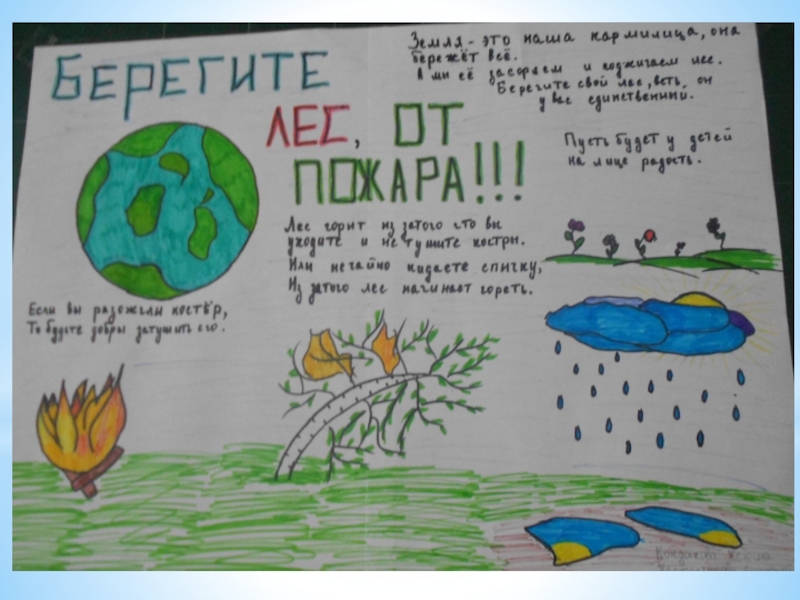 БЕРЕГИТЕ
ЛЕС, ОТ
ПОЖАРА!!!
Земля - это наша кармилица, она
бережёт всё.
А мы её засоряем и поджигаем лес.
Берегите свой лес, веть, он
у вас единственный.
Пусть будет у детей
на лице радость.
Лес горит из затого что вы
уходите и не тушите костры.
Или нечайно кидаете спичку,
Из затого лес начинает гореть.
Если вы разожгли костёр,
То будьте добры затушить его.